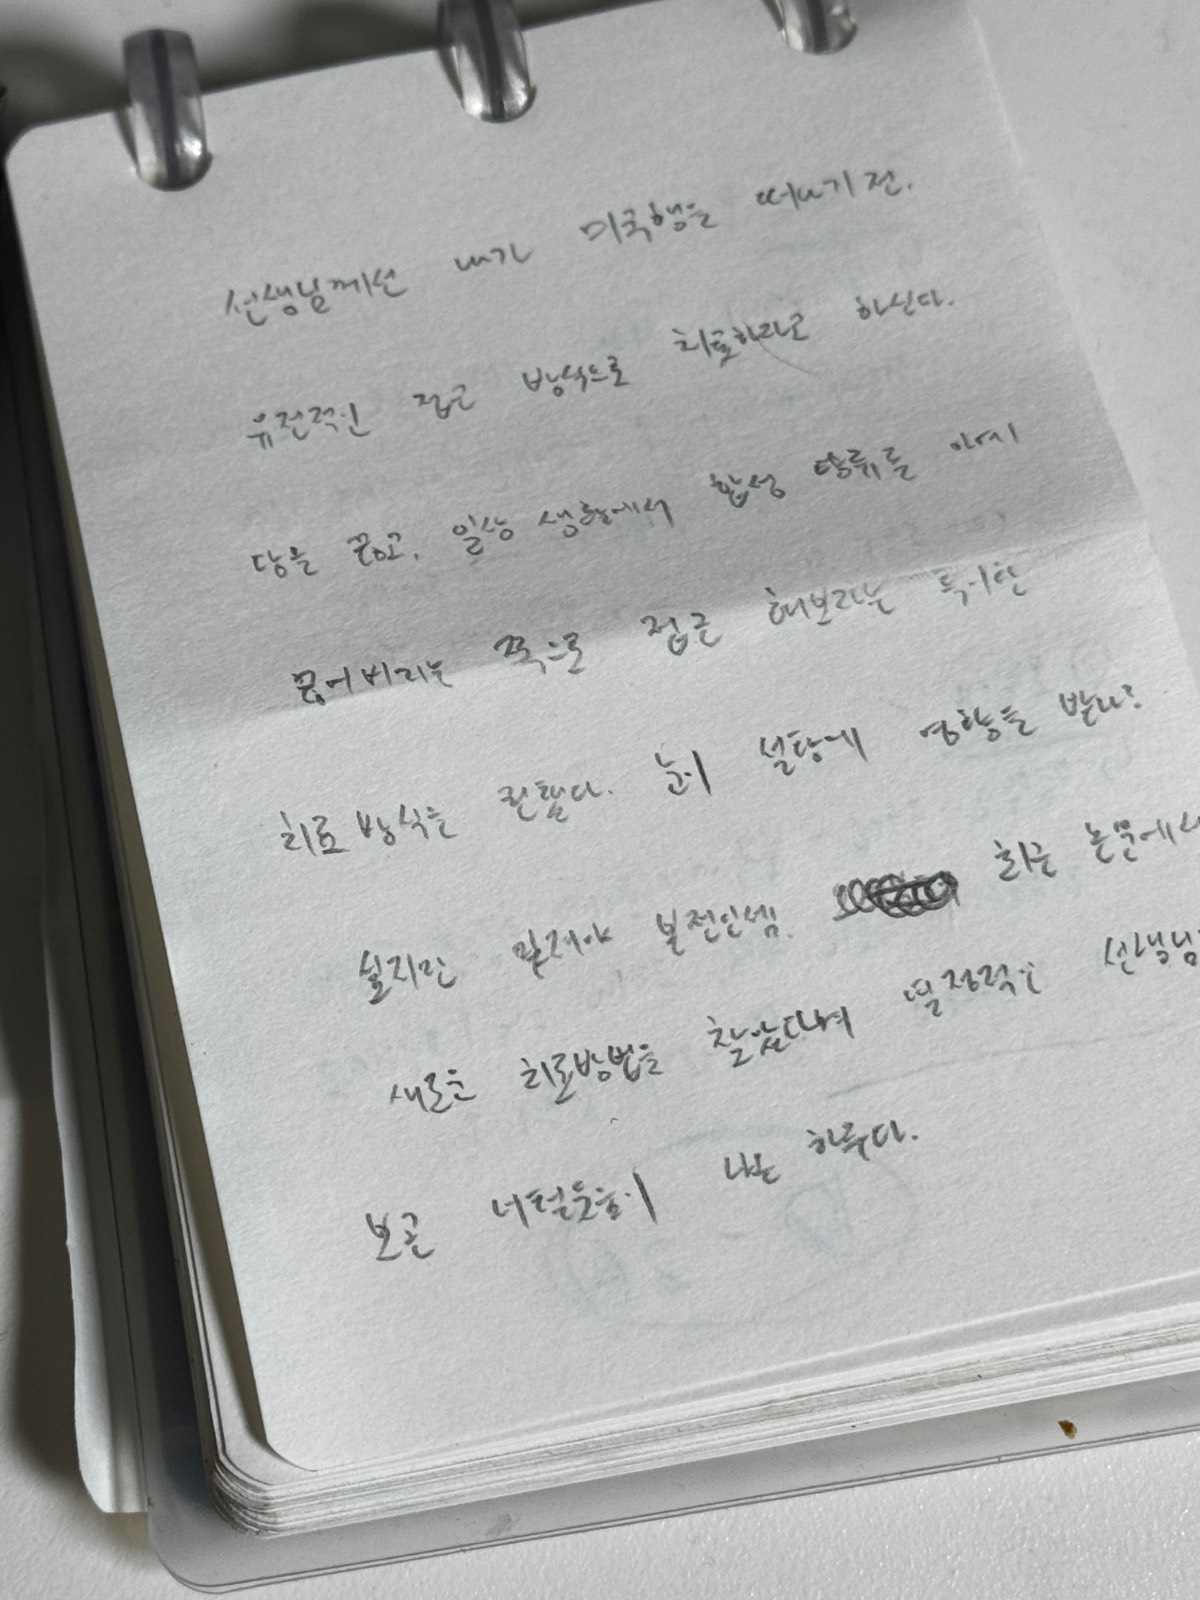 선생님께선 내가 미국행을 떠나기 전.
유전적인 접근 방식으로 치료하라고 하신다.
당을 끊고, 일상 생활에서 합성 당류를 아예
끊어버리는 쪽으로 접근 해보라는 특이한
치료방식을 권했다. 눈이 설탕에 영향을 받나?
싶지만 밑져야 본전인셈. 최근 논문에서
새로운 치료방법을 찾았다며 열정적인 선생님
보곤 너털웃음이 나는 하루다.